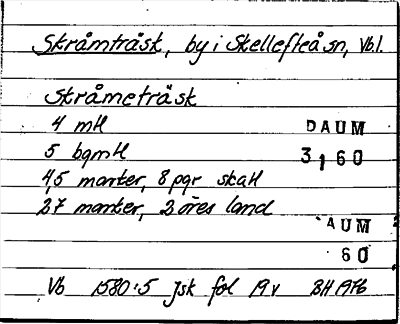 Skråmträsk, by i Skellefteå sn, Vb l.
Skråmeträsk
4 mtl
5 bgmtl
4,5 manter, 8 pgr skatt
27 manter, 2 öres land
DAUM
3,60
AUM
60
Vb 1580:5 Jsk fol 19v BH 1976